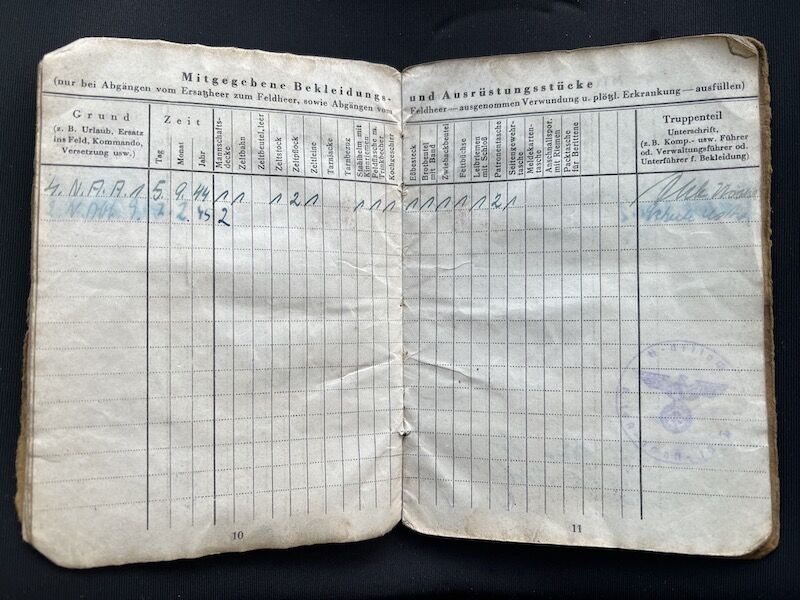 Mitgegebene Bekleidungs- und Ausrüstungsstücke
(nur bei Abgängen vom Ersatzheer zum Feldheer, sowie Abgängen vom Feldheer — ausgenommen Verwundung u. plötzl. Erkrankung — ausfüllen)
Grund
(z. B. Urlaub, Ersatz
ins Feld, Kommando,
Versetzung usw.)
Zeit
Tag
Monat
Jahr
Mannschafts-
decke
Zeltbahn
Zeltbeutel, leer
Zeltstock
Zeltpflock
Zeltleine
Tarnjacke
Tarnbezug
Stahlhelm mit
Kinnriemen
Feldflasche m.
Trinkbecher
Kochgeschirr
Eßbesteck
Brotbeutel
mit Band
Zwiebackbeutel
Fettbüchse
Leibriemen
mit Schloß
Patronentasche
Seitengewehr-
tasche
Meldekarten-
tasche
Anschnallspor.
mit Riemen
Packtasche
für Berittene
Truppenteil
Unterschrift,
(z. B. Komp.- usw. Führer
od. Verwaltungsführer od.
Unterführer f. Bekleidung)
4. N. A. A. 1 5. 9. 44 1 1 1 2 1 1 1 1 1 1 1 1 1 2 1
2. 45 2
10
11